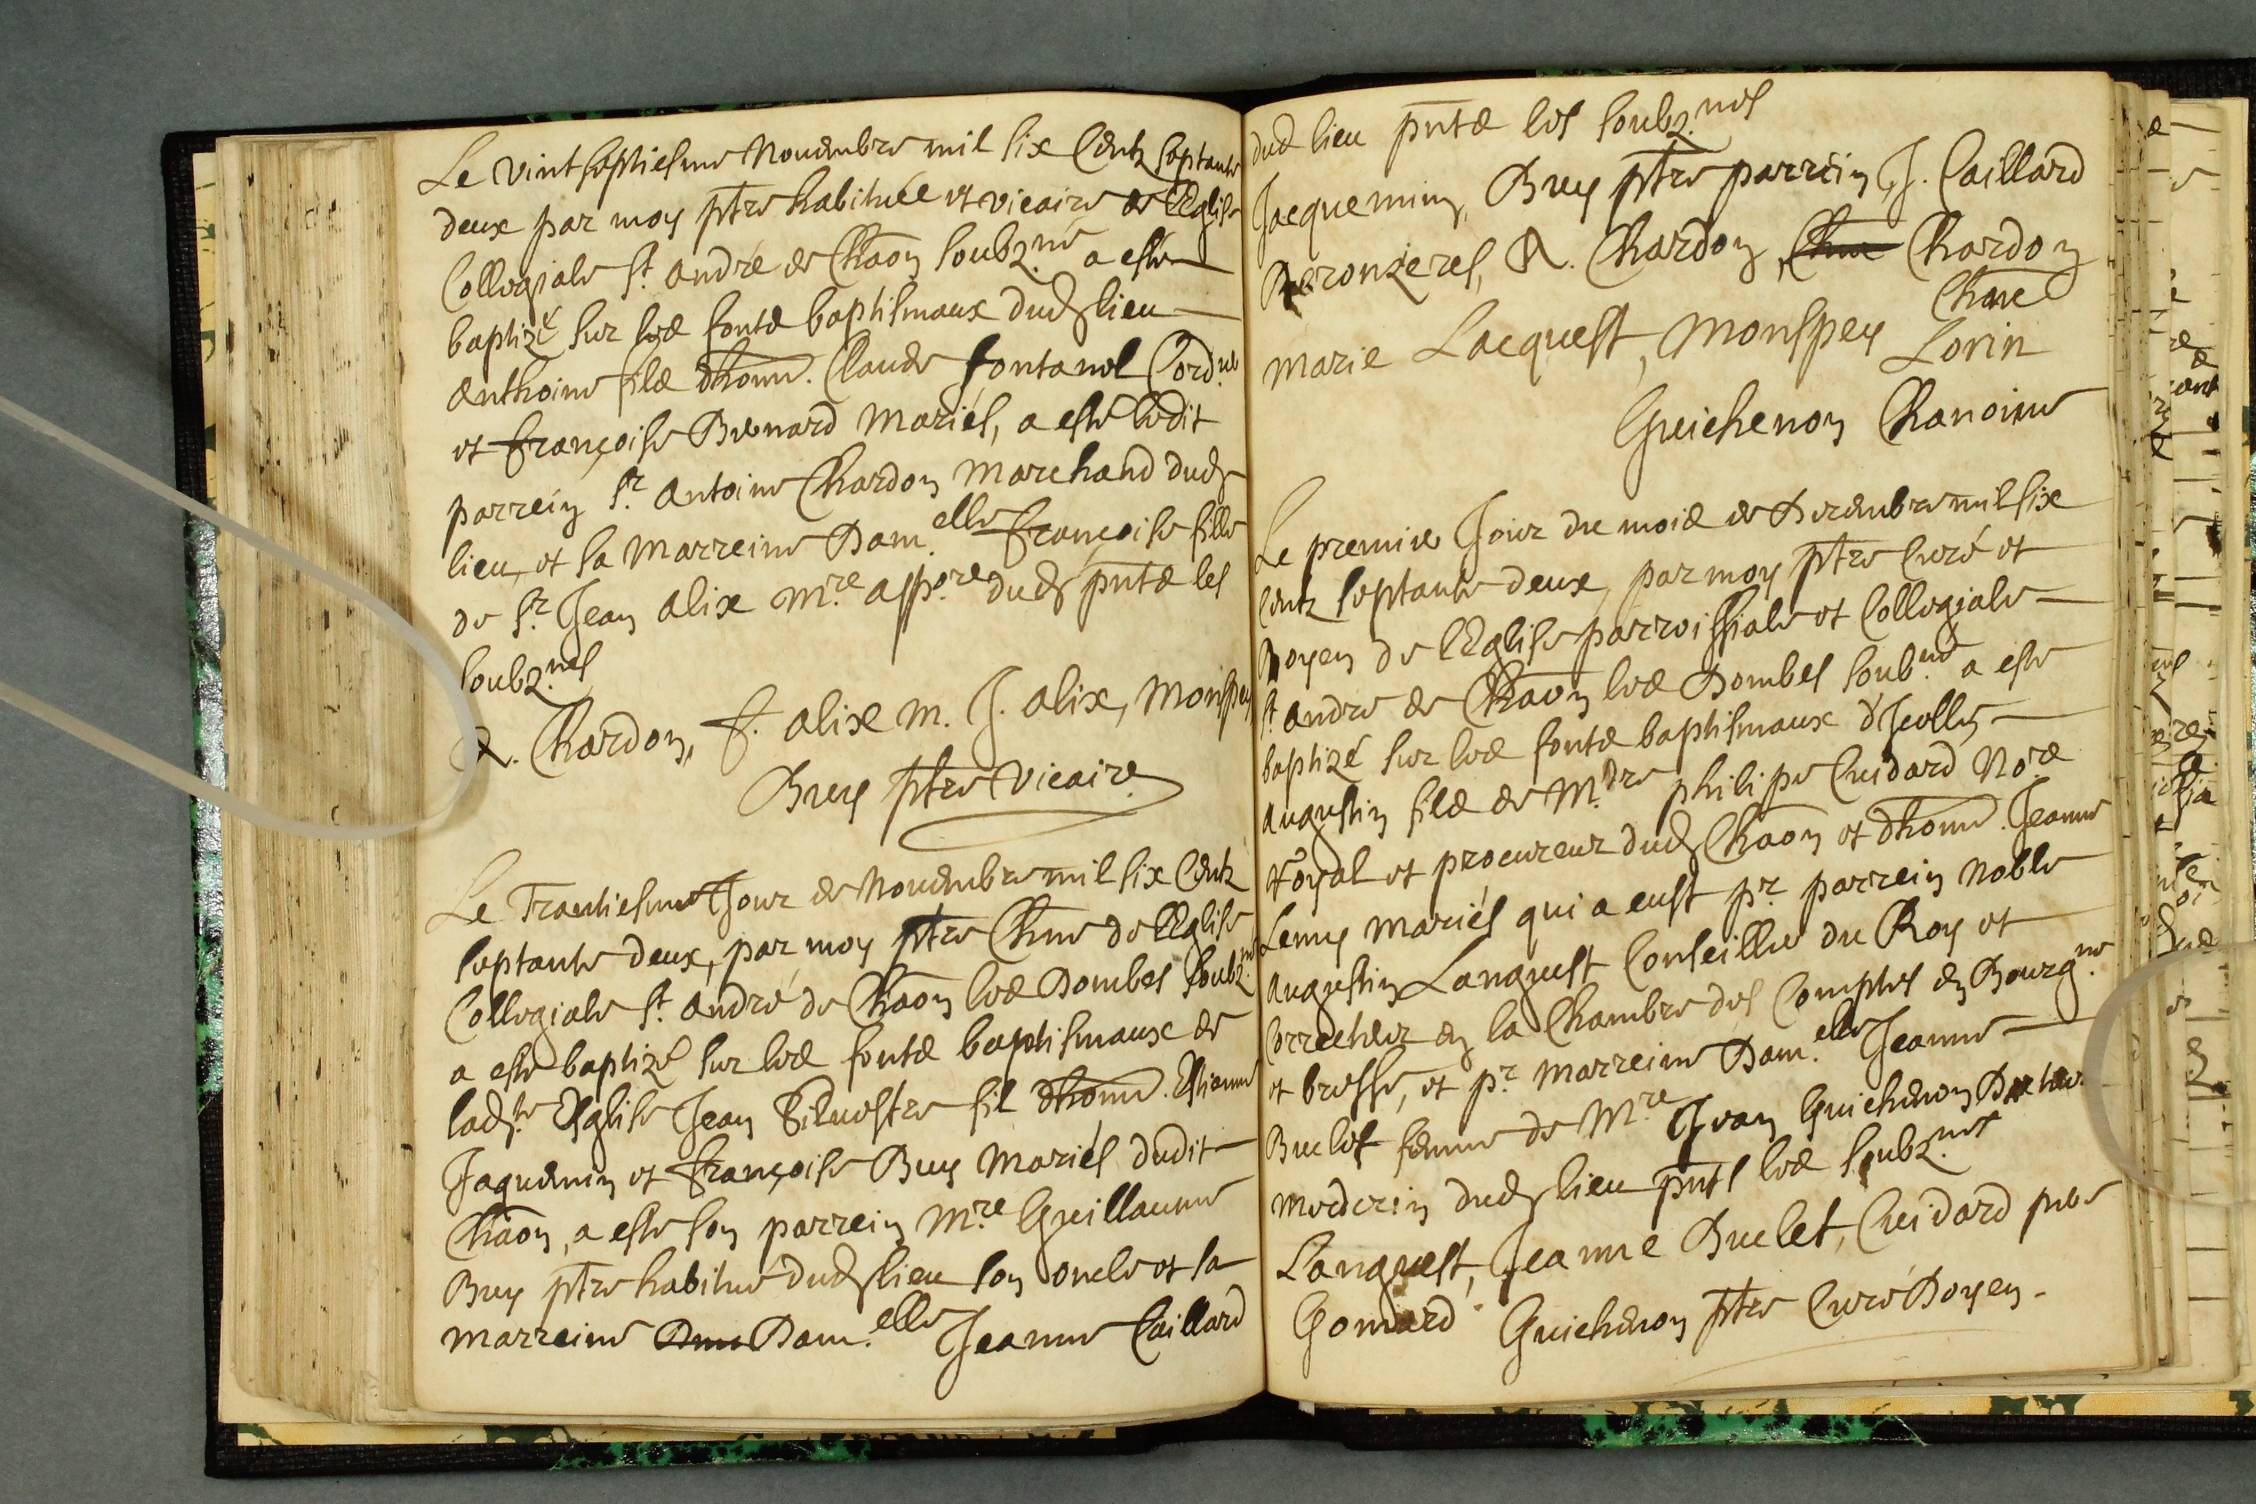 Le vintseptiesme Nouembre mil six Centz septante
deux par moy ptre habituée et vicaire de l'Eglise
Collegiale St. andré de Chaon soubz.né a esté
baptizé sur les fonts baptismaux dud lieu
anthoine fils dhonn. Claude fontanel Cord.er
et françoise Benard Mariés, a esté ledit
parrein Sr. Antoine Chardon Marchand dud
lieu, et sa Marreine Dam.elle françoise fille
de Sr. Jean alix M.re app.ore dud pnts les
soubz.nés
A. Chardon, f. alix m. J. alix, Monspey
Buy ptre Vicaire
Le Trantiesme Jour de Nouembre mil six Centz
septante deux, par moy ptre Chne de l'Eglise
Collegiale St. André de Chaon les Dombes soubz.né
a esté baptizé sur les fonts baptismaux de
lad.te Esglise Jean Siluestre fil dhonn. Estienne
Jaquemin et françoise Buy Mariés dudit
Chaon, a esté son parrein M.re Guillaume
Buy ptre habitué dud lieu son oncle et sa
marreine Dam.elle Jeanne Caillard
dud lieu pnts les soubz.nés
Jacquemin, Buy ptre parrein, J. Caillard
Peronzeres, A. Chardon, Chardon
Chne
Marie Lacquest, Monspey Lorin
Guichenon Chanoine
Le premier Jour du mois de Decembre mil six
Centz septante deux, par moy ptre Curé et
Doyen de l'Eglise parroissiale et Collegiale
St andre de Chaon les Dombes soub.né a esté
baptizé sur les fonts baptismaux d'Icelle
Augustin fils de M.tre philipe Cuidard No.re
Royal et procureur dud Chaon et dhonn. Jeanne
Lemy Mariés qui a eust pr. parrein Noble
Augustin Languest Conseiller du Roy et
Correcteur en la Chambre des Comptes en Bourg.ne
et bresse, et pr. Marreine Dam.elle Jeanne
Buclet femme de M.re Jean Guichenon Docteur
Medecin dud lieu pnts les soubz.nés
Languest, Jeanne Buclet, Cuidard pere
Gomard Guichenon ptre Curé Doyen.